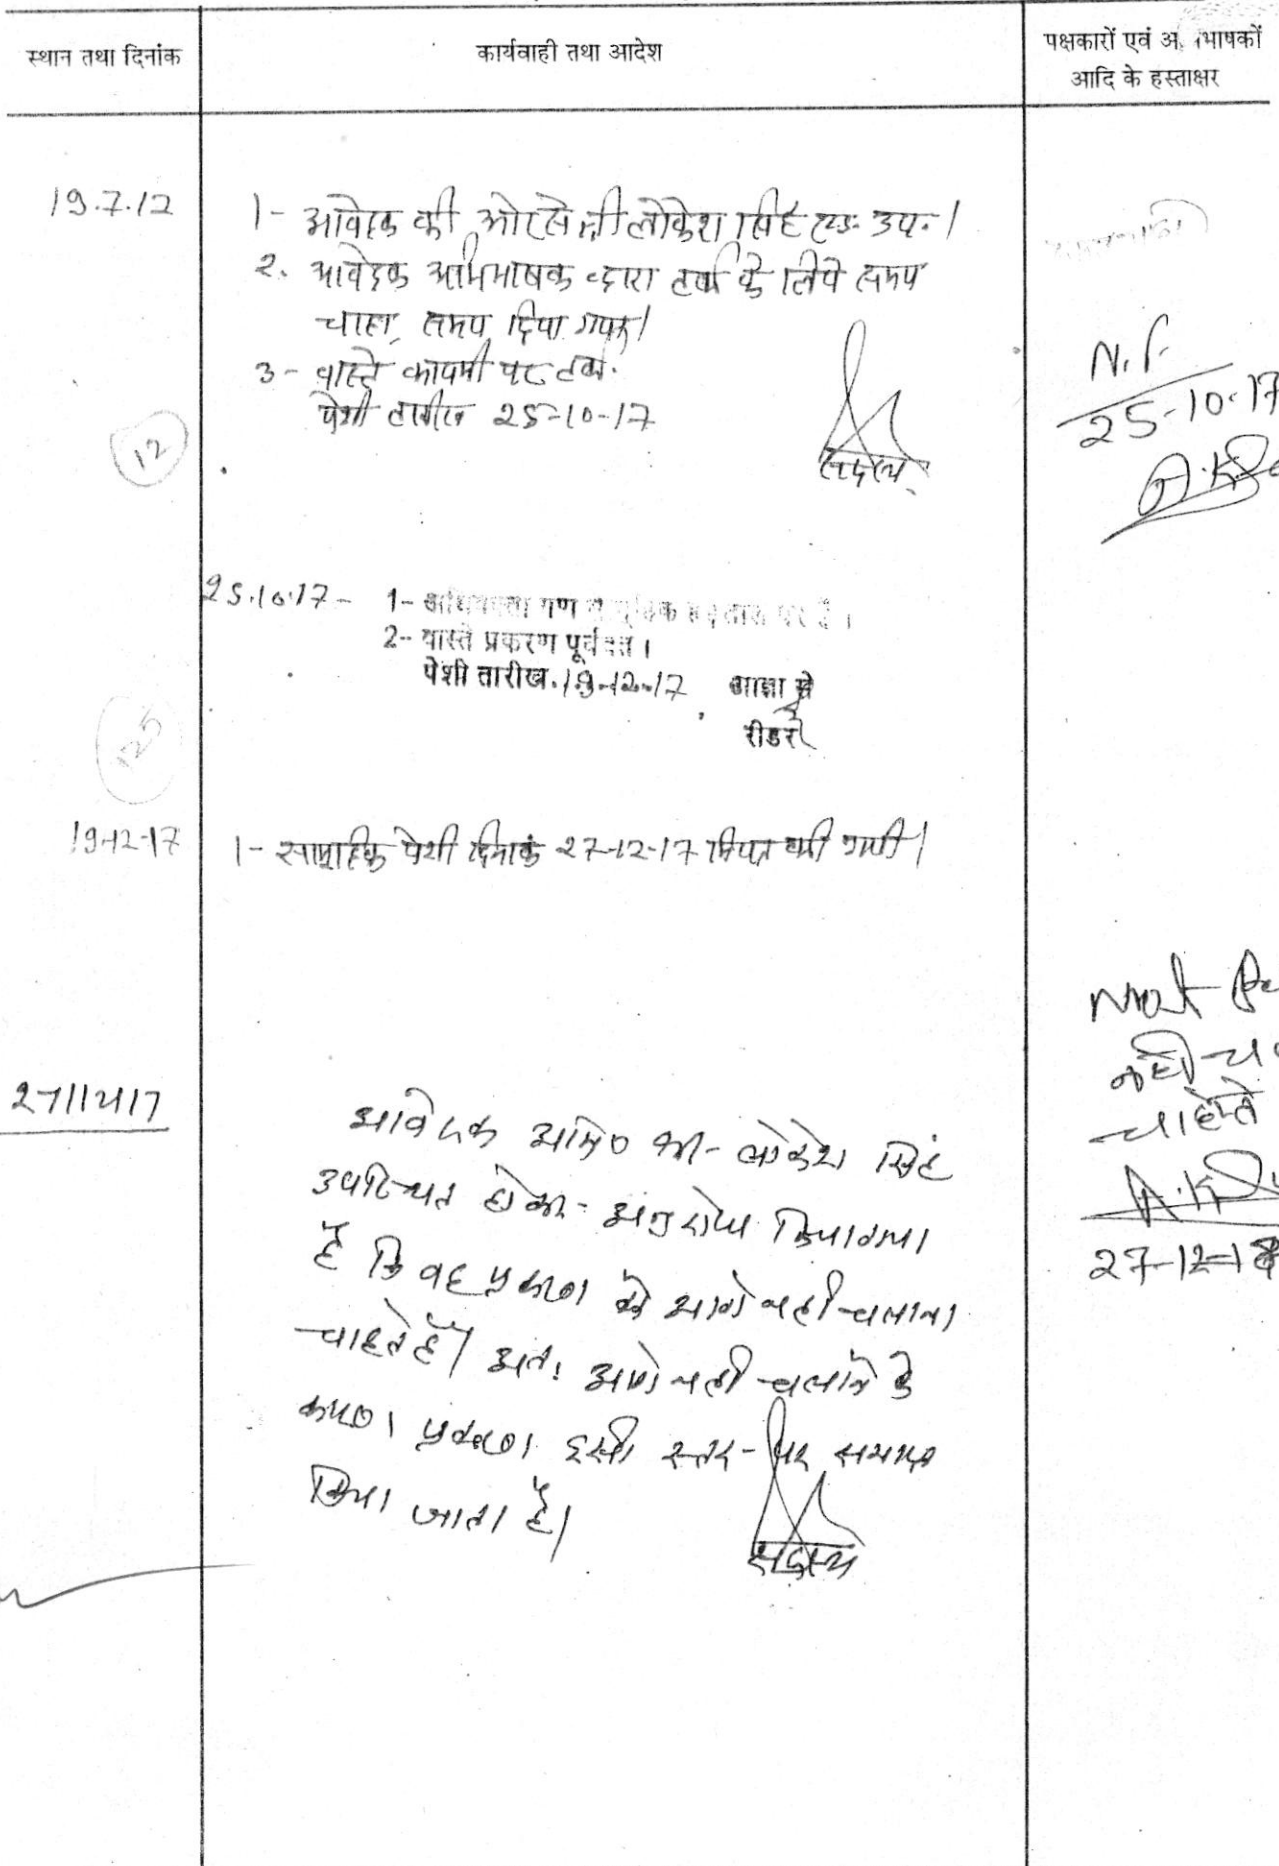 स्थान तथा दिनांक
कार्यवाही तथा आदेश
पक्षकारों एवं अभिभाषकों
आदि के हस्ताक्षर
19.7.12
1- आवेदक की ओर से श्री लोकेश सिंह एड. उप.।
2. आवेदक अभिभाषक द्वारा तर्क के लिये समय
चाहा, समय दिया गया।
3- वास्ते कायमी पर तर्क.
पेशी तारीख 25-10-17
सदस्य
N.T.
25-10-17
12
25.10.17- 1- अधिवक्ता गण सामूहिक हड़ताल पर हैं।
2- वास्ते प्रकरण पूर्ववत।
पेशी तारीख. 19-12-17 आज्ञा से
रीडर
19-12-17
1- सामूहिक पेशी दिनांक 27-12-17 नियत की गयी।
27/12/17
आवेदक अभि० श्री लोकेश सिंह
उपस्थित होकर अनुरोध किया गया
है कि वह प्रकरण को आगे नही चलाना
चाहते हैं। अतः आगे नही चलाने के
कारण प्रकरण इसी स्तर पर समाप्त
किया जाता है।
सदस्य
नही
चाहते
27-12-17